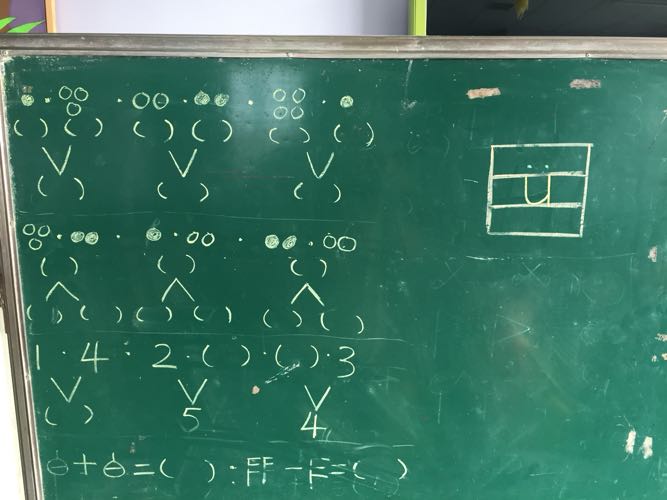 ( ) ( ) ( ) ( ) ( ) ( )
( ) ( ) ( )
ü
( ) ( ) ( )
( ) ( ) ( ) ( ) ( ) ( )
1 · 4 · 2 · ( ) · ( ) · 3
( ) 5 4
+ = ( ) : - = ( )